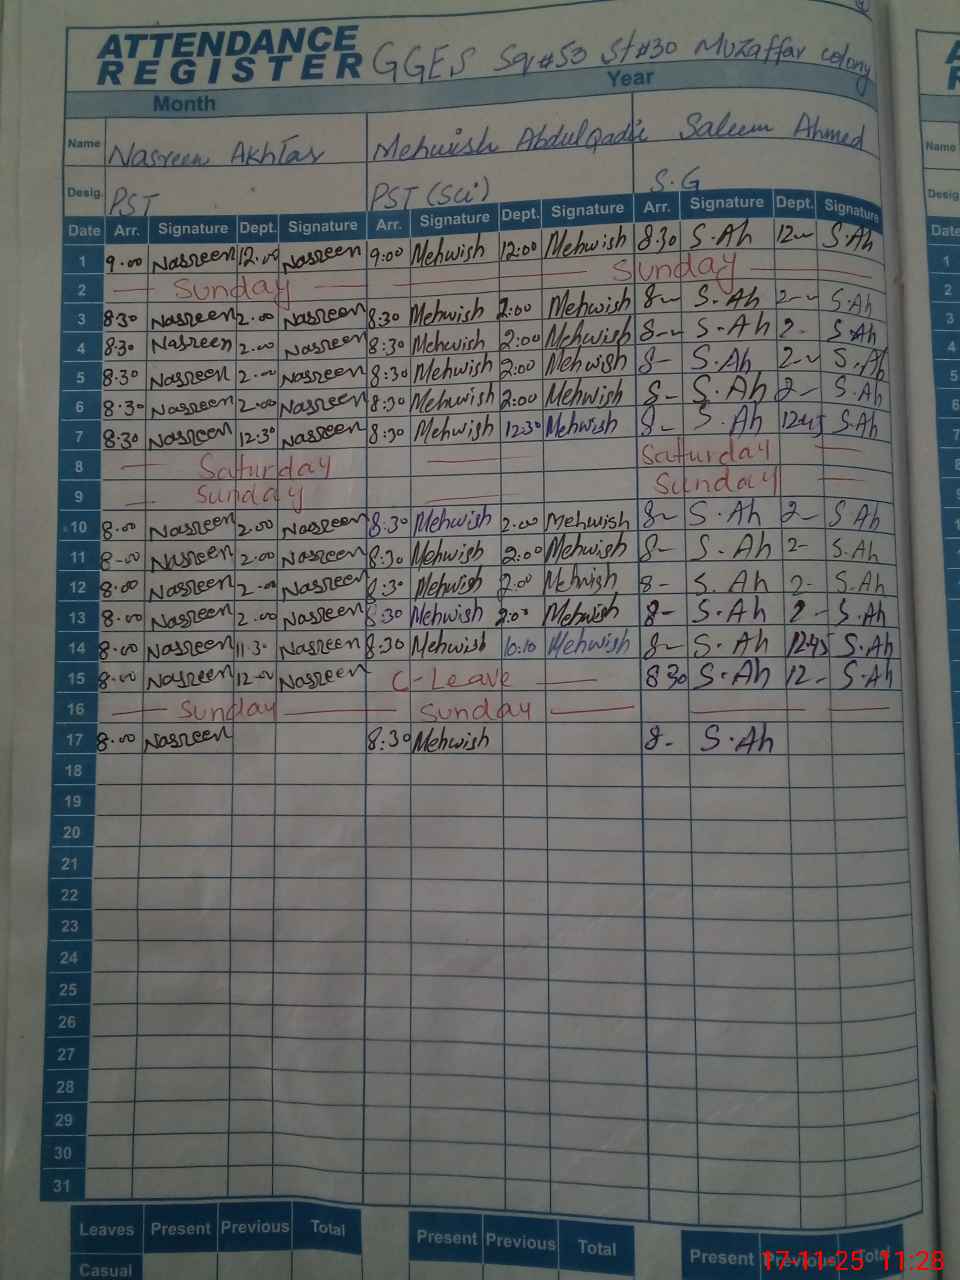 ATTENDANCE REGISTER GGES Sq#53 St#30 Muzaffar colony
Month Year
Name Nasreen Akhtar Mehwish Abdul Qadir Saleem Ahmed
Desig. PST PST (Sci) S.G
Date Arr. Signature Dept. Signature Arr. Signature Dept. Signature Arr. Signature Dept. Signature
1 9.00 Nasreen 12.00 Nasreen 9:00 Mehwish 12:00 Mehwish 8.30 S.Ah 12- S.Ah
2 Sunday Sunday
3 8.30 Nasreen 2.00 Nasreen 8:30 Mehwish 2:00 Mehwish 8- S.Ah 2- S.Ah
4 8.30 Nasreen 2.00 Nasreen 8:30 Mehwish 2:00 Mehwish 8- S.Ah 2- S.Ah
5 8.30 Nasreen 2.00 Nasreen 8:30 Mehwish 2:00 Mehwish 8- S.Ah 2- S.Ah
6 8.30 Nasreen 2.00 Nasreen 8:30 Mehwish 2:00 Mehwish 8- S.Ah 2- S.Ah
7 8.30 Nasreen 12.30 Nasreen 8:30 Mehwish 12:30 Mehwish 8- S.Ah 1245 S.Ah
8 Saturday Saturday
9 Sunday Sunday
10 8.00 Nasreen 2.00 Nasreen 8:30 Mehwish 2:00 Mehwish 8- S.Ah 2- S.Ah
11 8-00 Nasreen 2.00 Nasreen 8:30 Mehwish 2:00 Mehwish 8- S.Ah 2- S.Ah
12 8.00 Nasreen 2.00 Nasreen 8:30 Mehwish 2:00 Mehwish 8- S.Ah 2- S.Ah
13 8.00 Nasreen 2.00 Nasreen 8:30 Mehwish 2:00 Mehwish 8- S.Ah 2- S.Ah
14 8.00 Nasreen 11.30 Nasreen 8:30 Mehwish 10:10 Mehwish 8- S.Ah 1245 S.Ah
15 8.00 Nasreen 12.00 Nasreen C-Leave 830 S.Ah 12- S.Ah
16 Sunday Sunday
17 8.00 Nasreen 8:30 Mehwish 8- S.Ah
18
19
20
21
22
23
24
25
26
27
28
29
30
31
Leaves Present Previous Total Present Previous Total Present Previous Total
Casual
17-11-25 11:28
Name
Desig.
Date
1
2
3
4
5
6
7